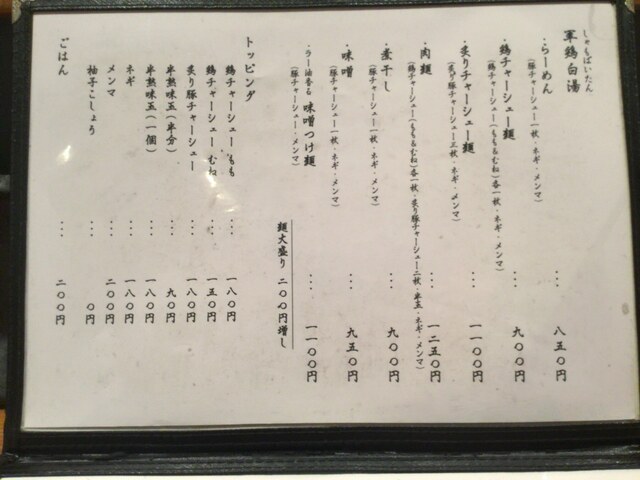 しゃもぱいたん
軍鶏白湯
・らーめん … 八五〇円
（豚チャーシュー一枚・ネギ・メンマ）
・鶏チャーシュー麺 … 九〇〇円
（鶏チャーシュー（もも&むね）各一枚・ネギ・メンマ）
・炙りチャーシュー麺 … 一一〇〇円
（炙り豚チャーシュー三枚・ネギ・メンマ）
・肉麺 … 一二五〇円
（鶏チャーシュー（もも&むね）各一枚・炙り豚チャーシュー二枚・半玉・ネギ・メンマ）
・煮干し … 九〇〇円
（豚チャーシュー一枚・ネギ・メンマ）
・味噌 … 九五〇円
（豚チャーシュー一枚・ネギ・メンマ）
・ラー油香る 味噌つけ麺 … 一一〇〇円
（豚チャーシュー・メンマ）
麺大盛り 二〇〇円増し
トッピング
鶏チャーシュー もも … 一八〇円
鶏チャーシュー むね … 一五〇円
炙り豚チャーシュー … 一八〇円
半熟味玉（半分） … 九〇円
半熟味玉（一個） … 一八〇円
ネギ … 一八〇円
メンマ … 二〇〇円
柚子こしょう … 〇円
ごはん … 二〇〇円